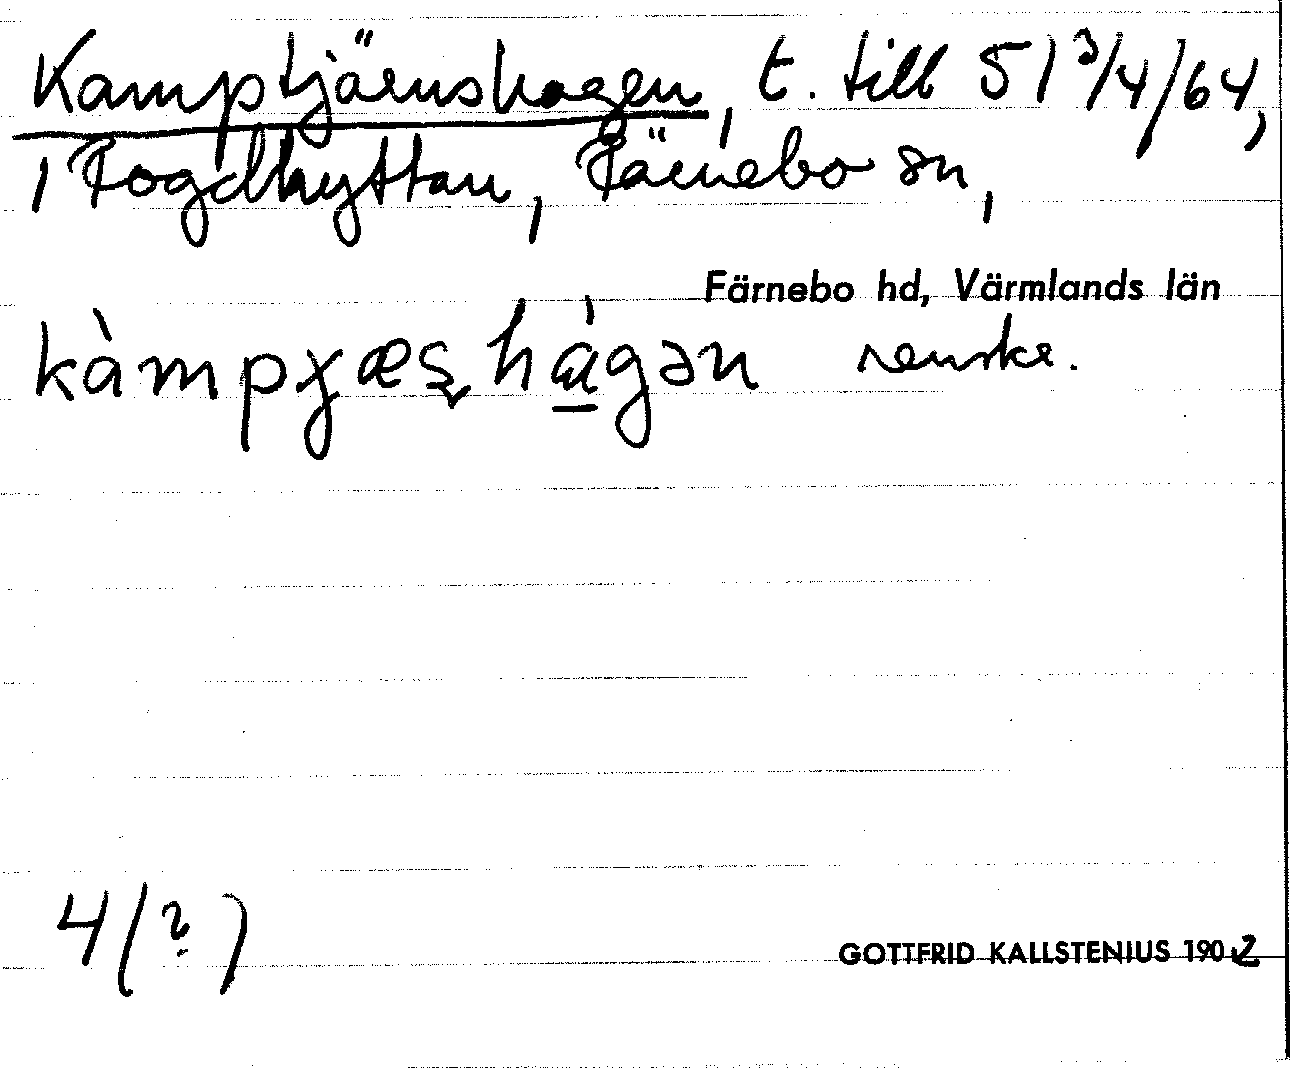 Kamptjärnshagen, t. till 51 3/4/64,
i Fogdhyttan, Färnebo sn,
Färnebo hd, Värmlands län
kàmpχæʂhágən renske.
4(?)
GOTTFRID KALLSTENIUS 1902